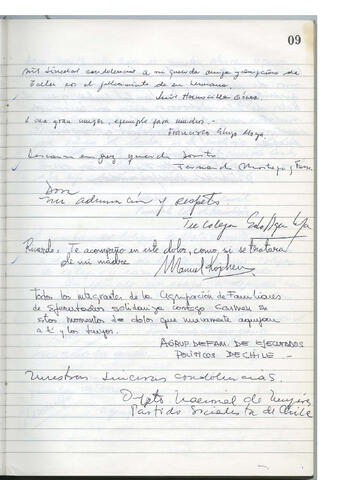 09
mis sinceras condolencias a mi querida amiga y compañera de
taller en el fallecimiento de su hermano.
Luis
A una gran mujer, ejemplo para muchos.-
Francisco
Descansa en paz querida
Fernando Montes y Fam.
Con
mi admiración y respeto
Tu colega
Ricardo: Te acompaño en este dolor, como si se tratara
de mi madre
Manuel
Todos los integrantes de la Agrupación de Familiares
de Ejecutados solidariza contigo Carmen en
estos momentos de dolor que nuevamente aquejan
a ti y los tuyos.
AGRUP. DE FAM. DE EJECUTADOS
POLITICOS DE CHILE.-
Nuestras sinceras condolencias.
Dpto. Nacional de Mujeres
Partido Socialista de Chile